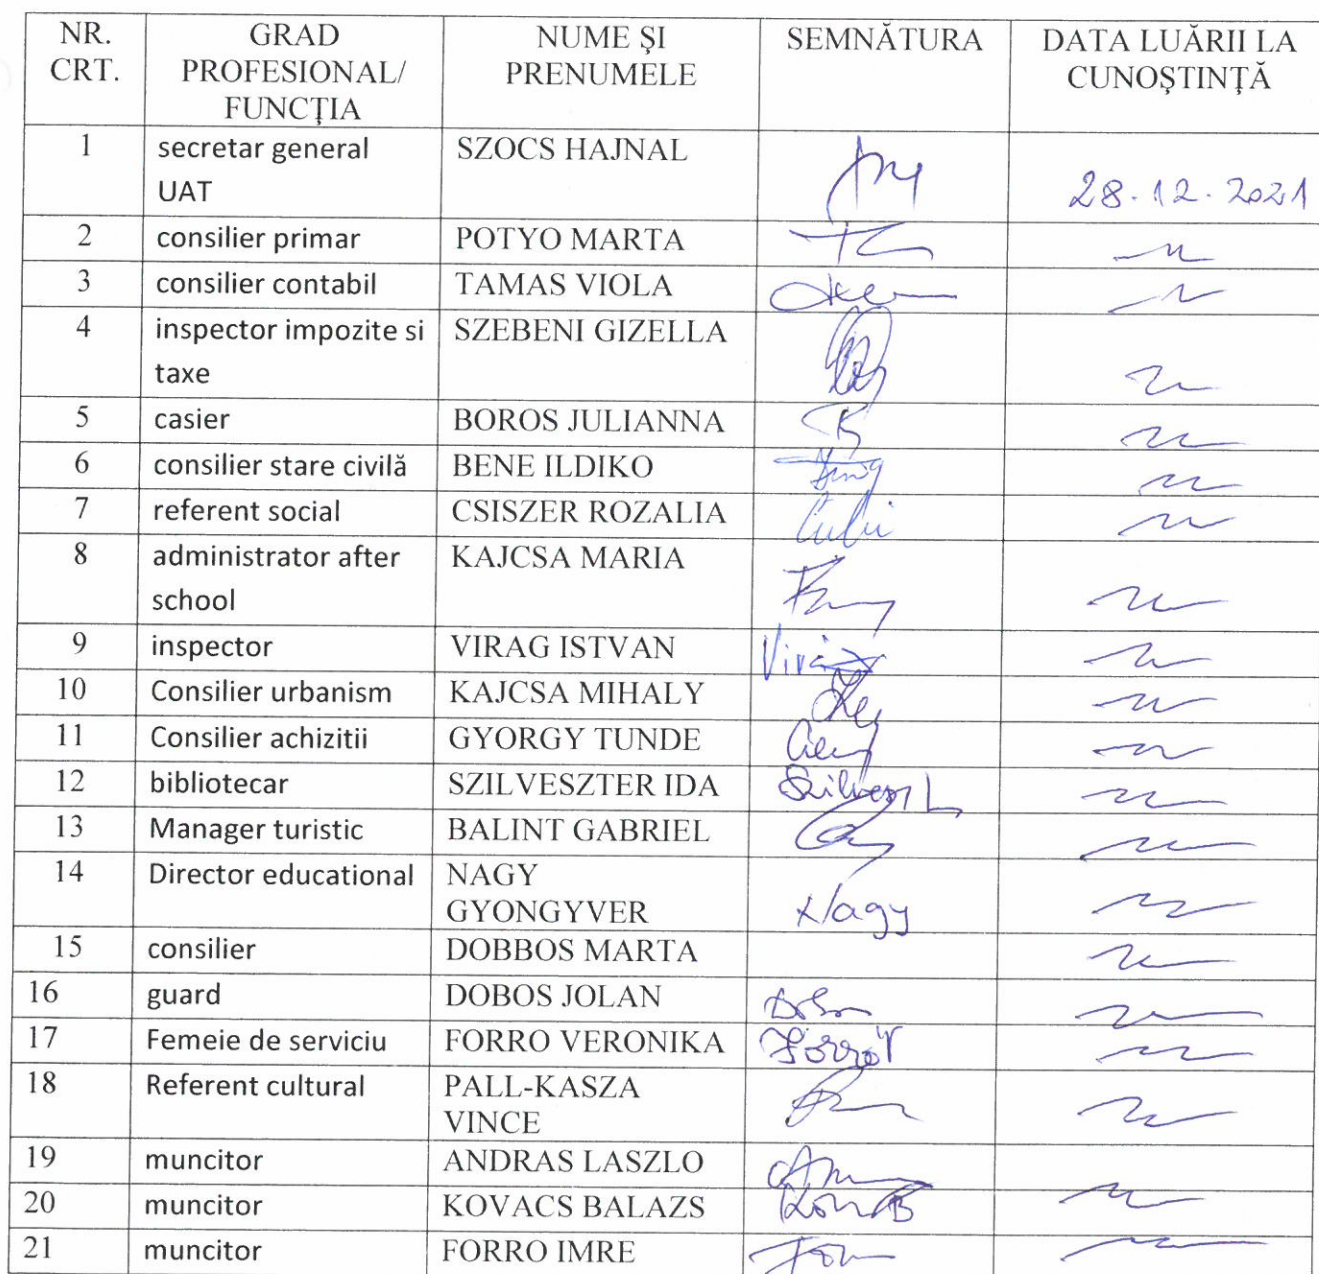 NR. CRT. GRAD PROFESIONAL/ FUNCȚIA NUME ȘI PRENUMELE SEMNĂTURA DATA LUĂRII LA CUNOȘTINȚĂ
1 secretar general UAT SZOCS HAJNAL 28.12.2021
2 consilier primar POTYO MARTA
3 consilier contabil TAMAS VIOLA
4 inspector impozite si taxe SZEBENI GIZELLA
5 casier BOROS JULIANNA
6 consilier stare civilă BENE ILDIKO
7 referent social CSISZER ROZALIA
8 administrator after school KAJCSA MARIA
9 inspector VIRAG ISTVAN
10 Consilier urbanism KAJCSA MIHALY
11 Consilier achizitii GYORGY TUNDE
12 bibliotecar SZILVESZTER IDA
13 Manager turistic BALINT GABRIEL
14 Director educational NAGY GYONGYVER Nagy
15 consilier DOBBOS MARTA
16 guard DOBOS JOLAN
17 Femeie de serviciu FORRO VERONIKA
18 Referent cultural PALL-KASZA VINCE
19 muncitor ANDRAS LASZLO
20 muncitor KOVACS BALAZS
21 muncitor FORRO IMRE